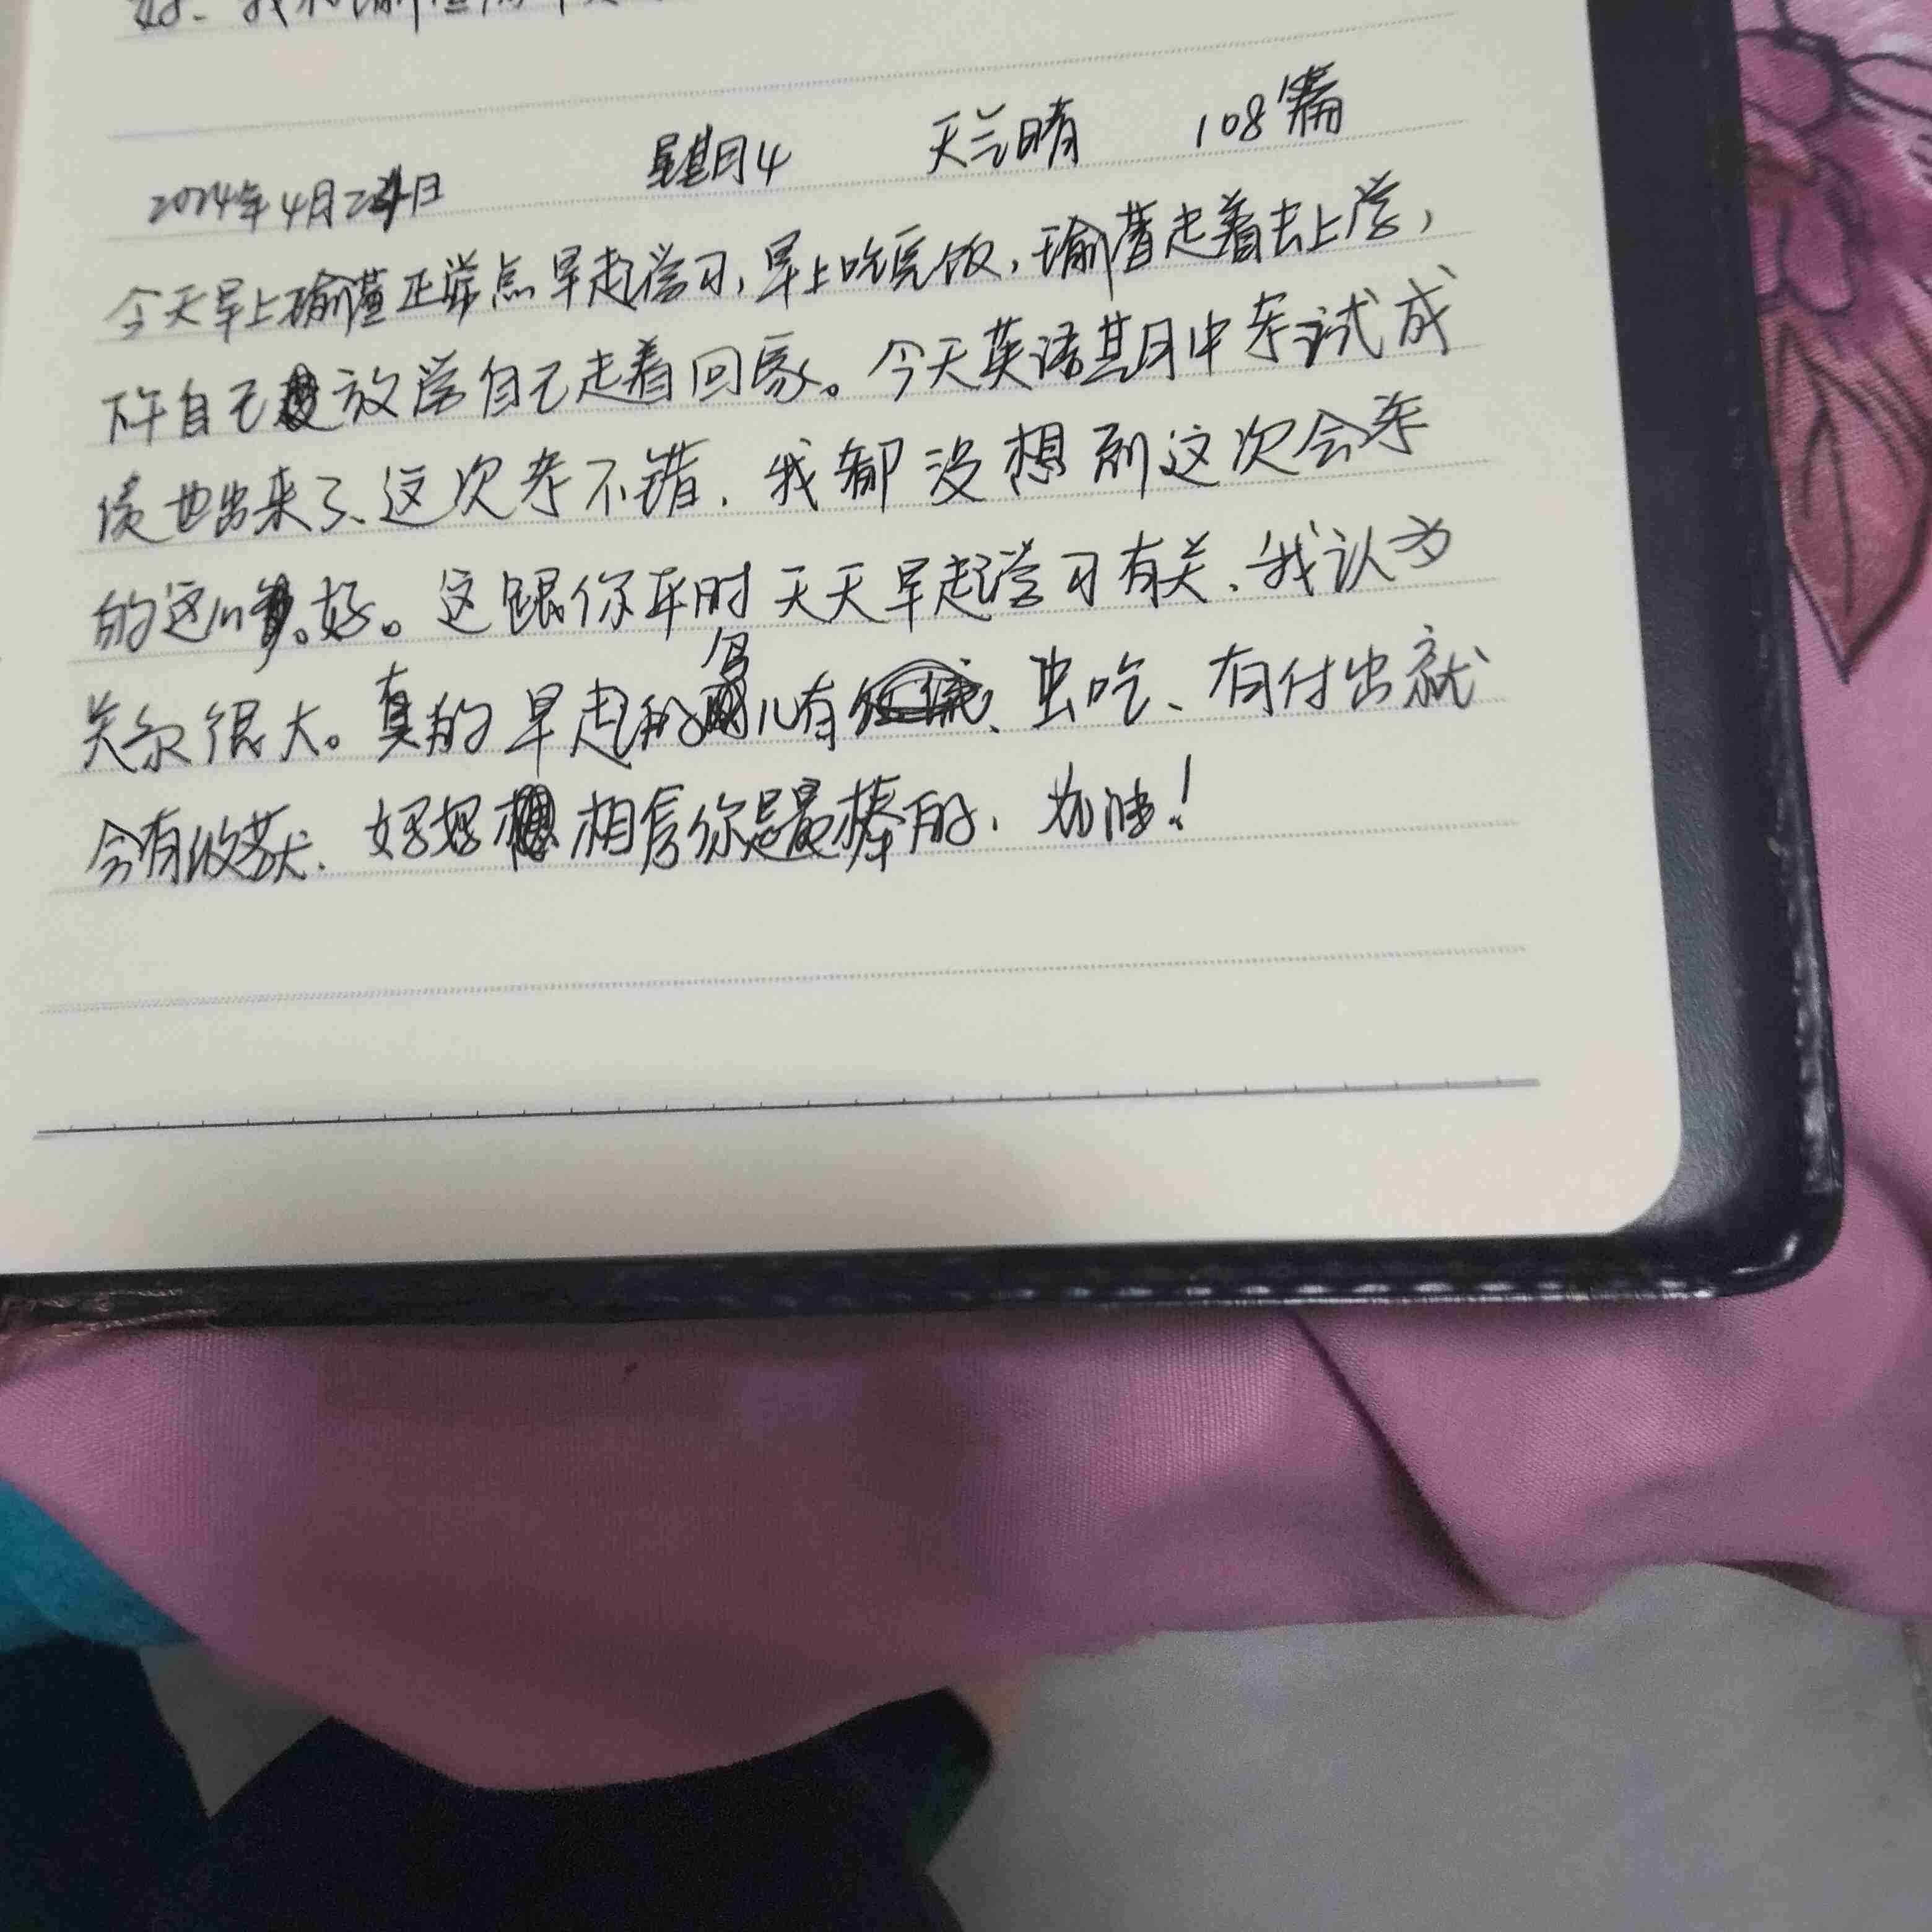 2024年4月2日 星期4 天气晴 108篇
今天早上瑜瑾正常点早起学习,早上吃完饭,瑜瑾走着去上学,
下午自己放学自己走着回家。今天英语期中考试成
绩也出来了、这次考不错、我都没想到这次会考
的这么好。这跟你平时天天早起学习有关、我认为
关系很大。真的早起的鸟儿有虫吃、有付出就
会有收获、好好相信你是最棒的、加油!